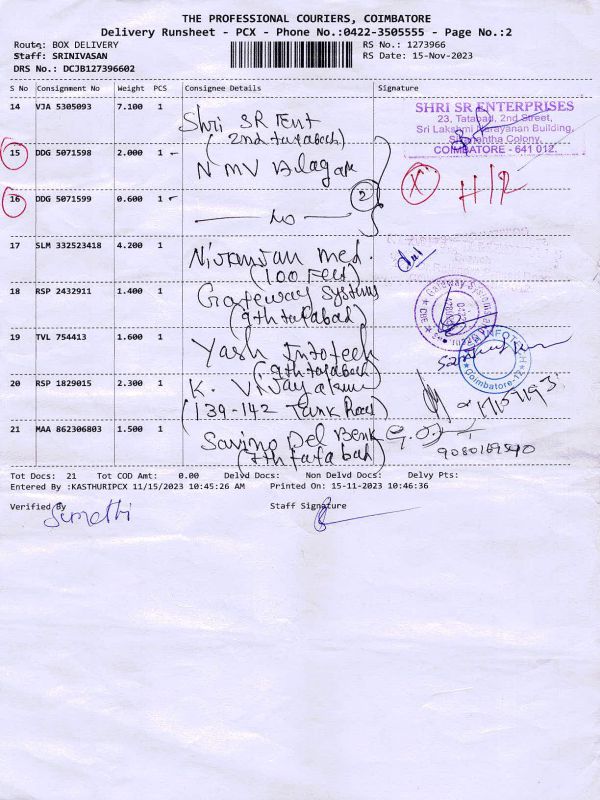 THE PROFESSIONAL COURIERS, COIMBATORE
Delivery Runsheet - PCX - Phone No.:0422-3505555 - Page No.:2
Route: BOX DELIVERY
RS No.: 1273966
Staff: SRINIVASAN
RS Date: 15-Nov-2023
DRS No.: DCJB127396602
S No Consignment No Weight PCS Consignee Details Signature
14 VJA 5305093 7.100 1 Shri SR Tent
(2nd tatabad)
SHRI SR ENTERPRISES
23, Tatabad, 2nd Street,
Sri Lakshmi Narayanan Building,
Colony,
COIMBATORE - 641 012.
15 DDG 5071598 2.000 1 NMV
X H/2
16 DDG 5071599 0.600 1
2
17 SLM 332523418 4.200 1 Niranjan Med.
(100 Feet)
18 RSP 2432911 1.400 1 Gateway Systems
(9th tatabad)
19 TVL 754413 1.600 1 Yash Infotech
(9th tatabad)
INFOTECH
Coimbatore-12
20 RSP 1829015 2.300 1 K. Vijayakumar
(139-142 Tank Road)
21 MAA 862306803 1.500 1 Savino Del Bene
(7th tatabad)
Tot Docs: 21 Tot COD Amt: 0.00 Delvd Docs: Non Delvd Docs: Delvy Pts:
Entered By :KASTHURIPCX 11/15/2023 10:45:26 AM Printed On: 15-11-2023 10:46:36
Verified By Staff Signature